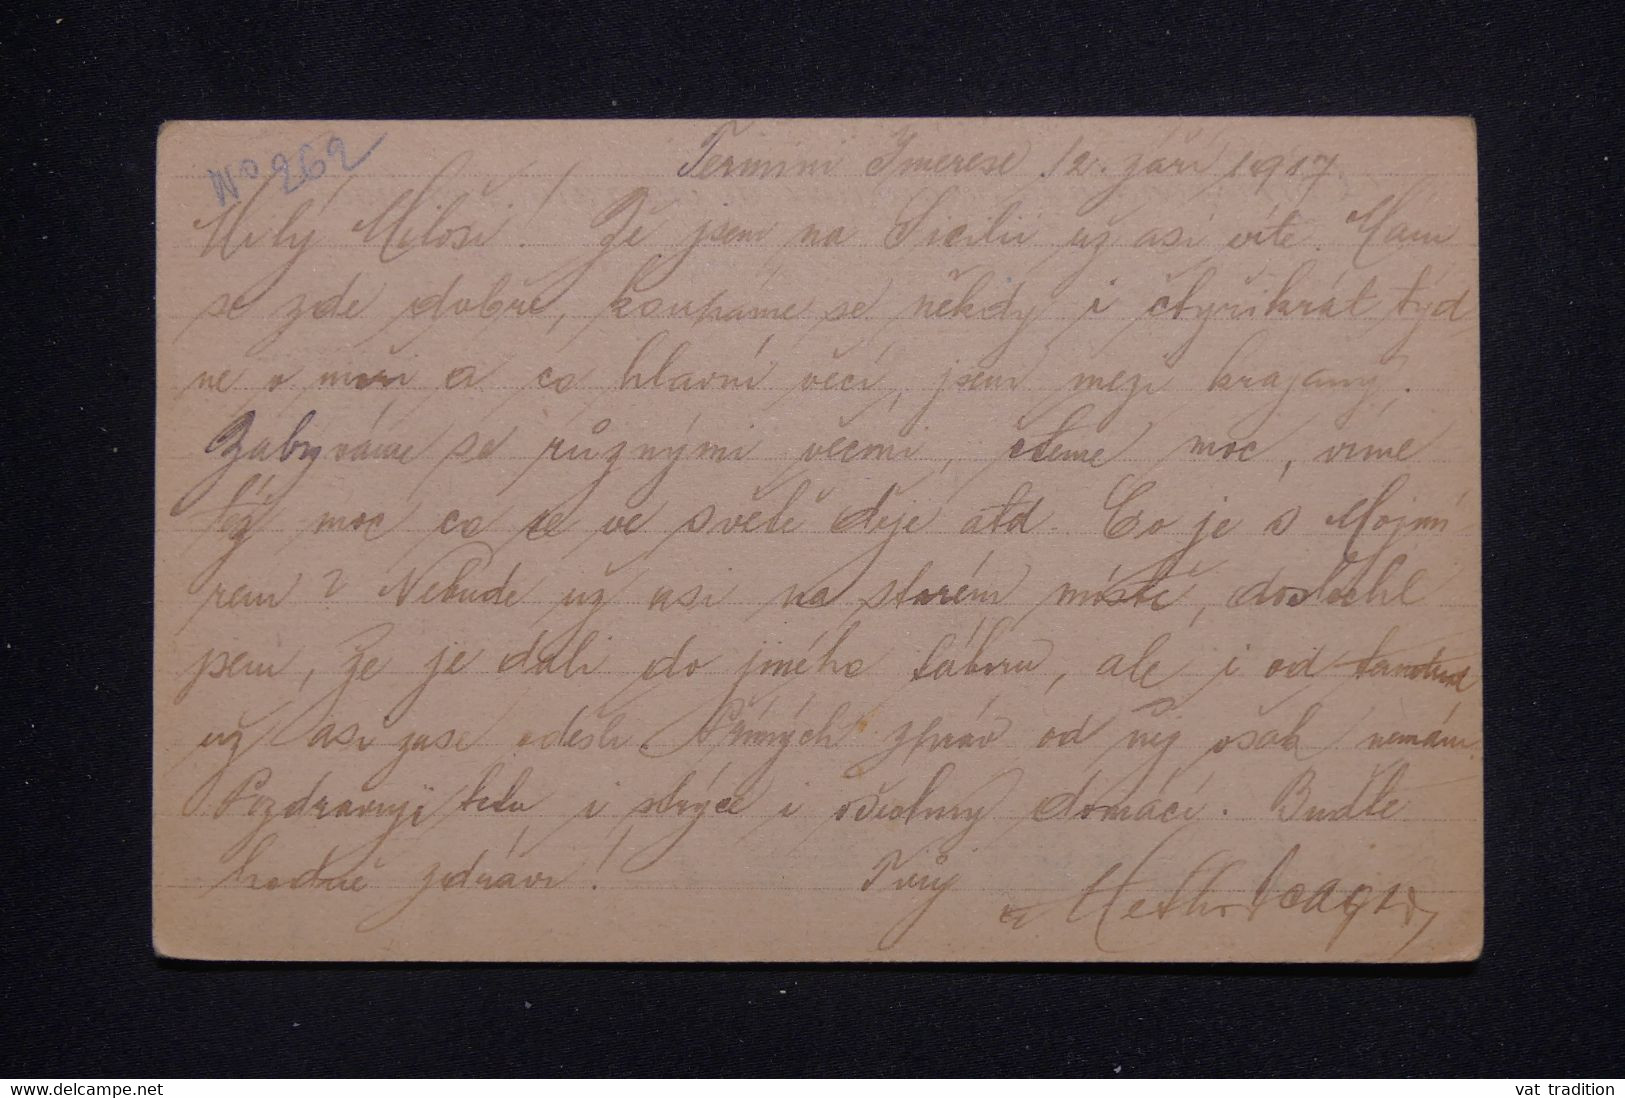 No 262
Termini Imerese 12. září 1917.
Milý Miloši! Že jsem na Sicilii už asi víte. Mám
se zde dobře, koupáme se někdy i čtyřikrát týd
ne v moři a co hlavní věcí, jsem mezi krajany.
Zabýváme se různými věcmi, čteme moc, víme
též moc co se ve světě děje atd. Co je s Mojmí
rem? Nebude už asi na starém místě, doslechl
jsem, že je dali do jiného tábora, ale i od
už asi zase odešli. Přímých zpráv od něj však nemám.
Pozdravuji tetu i strýce i všechny domácí. Buďte
hodně zdrávi! Tvůj
www.delcampe.net
vat tradition